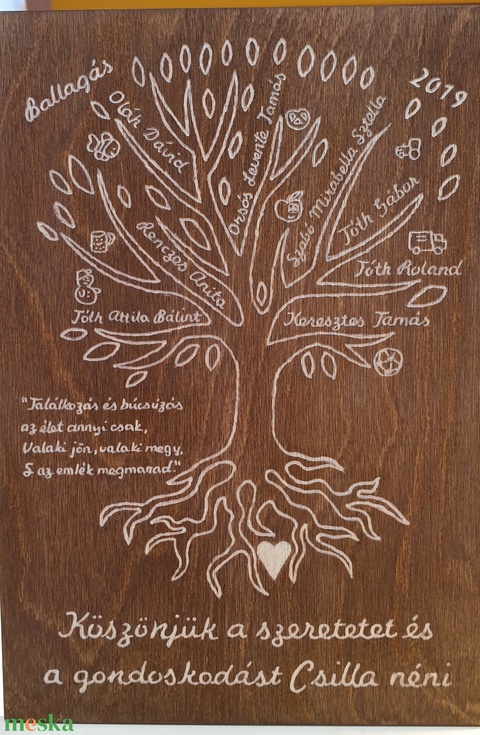 Ballagás
2019
Oláh Dávid
Orsós Levente Tamás
Szabó Mirabella Sztella
Tóth Gábor
Renczes Anita
Tóth Roland
Tóth Attila Bálint
Keresztes Tamás
"Találkozás és búcsúzás
az élet annyi csak,
Valaki jön, valaki megy,
S az emlék megmarad."
Köszönjük a szeretetet és
a gondoskodást Csilla néni
meska